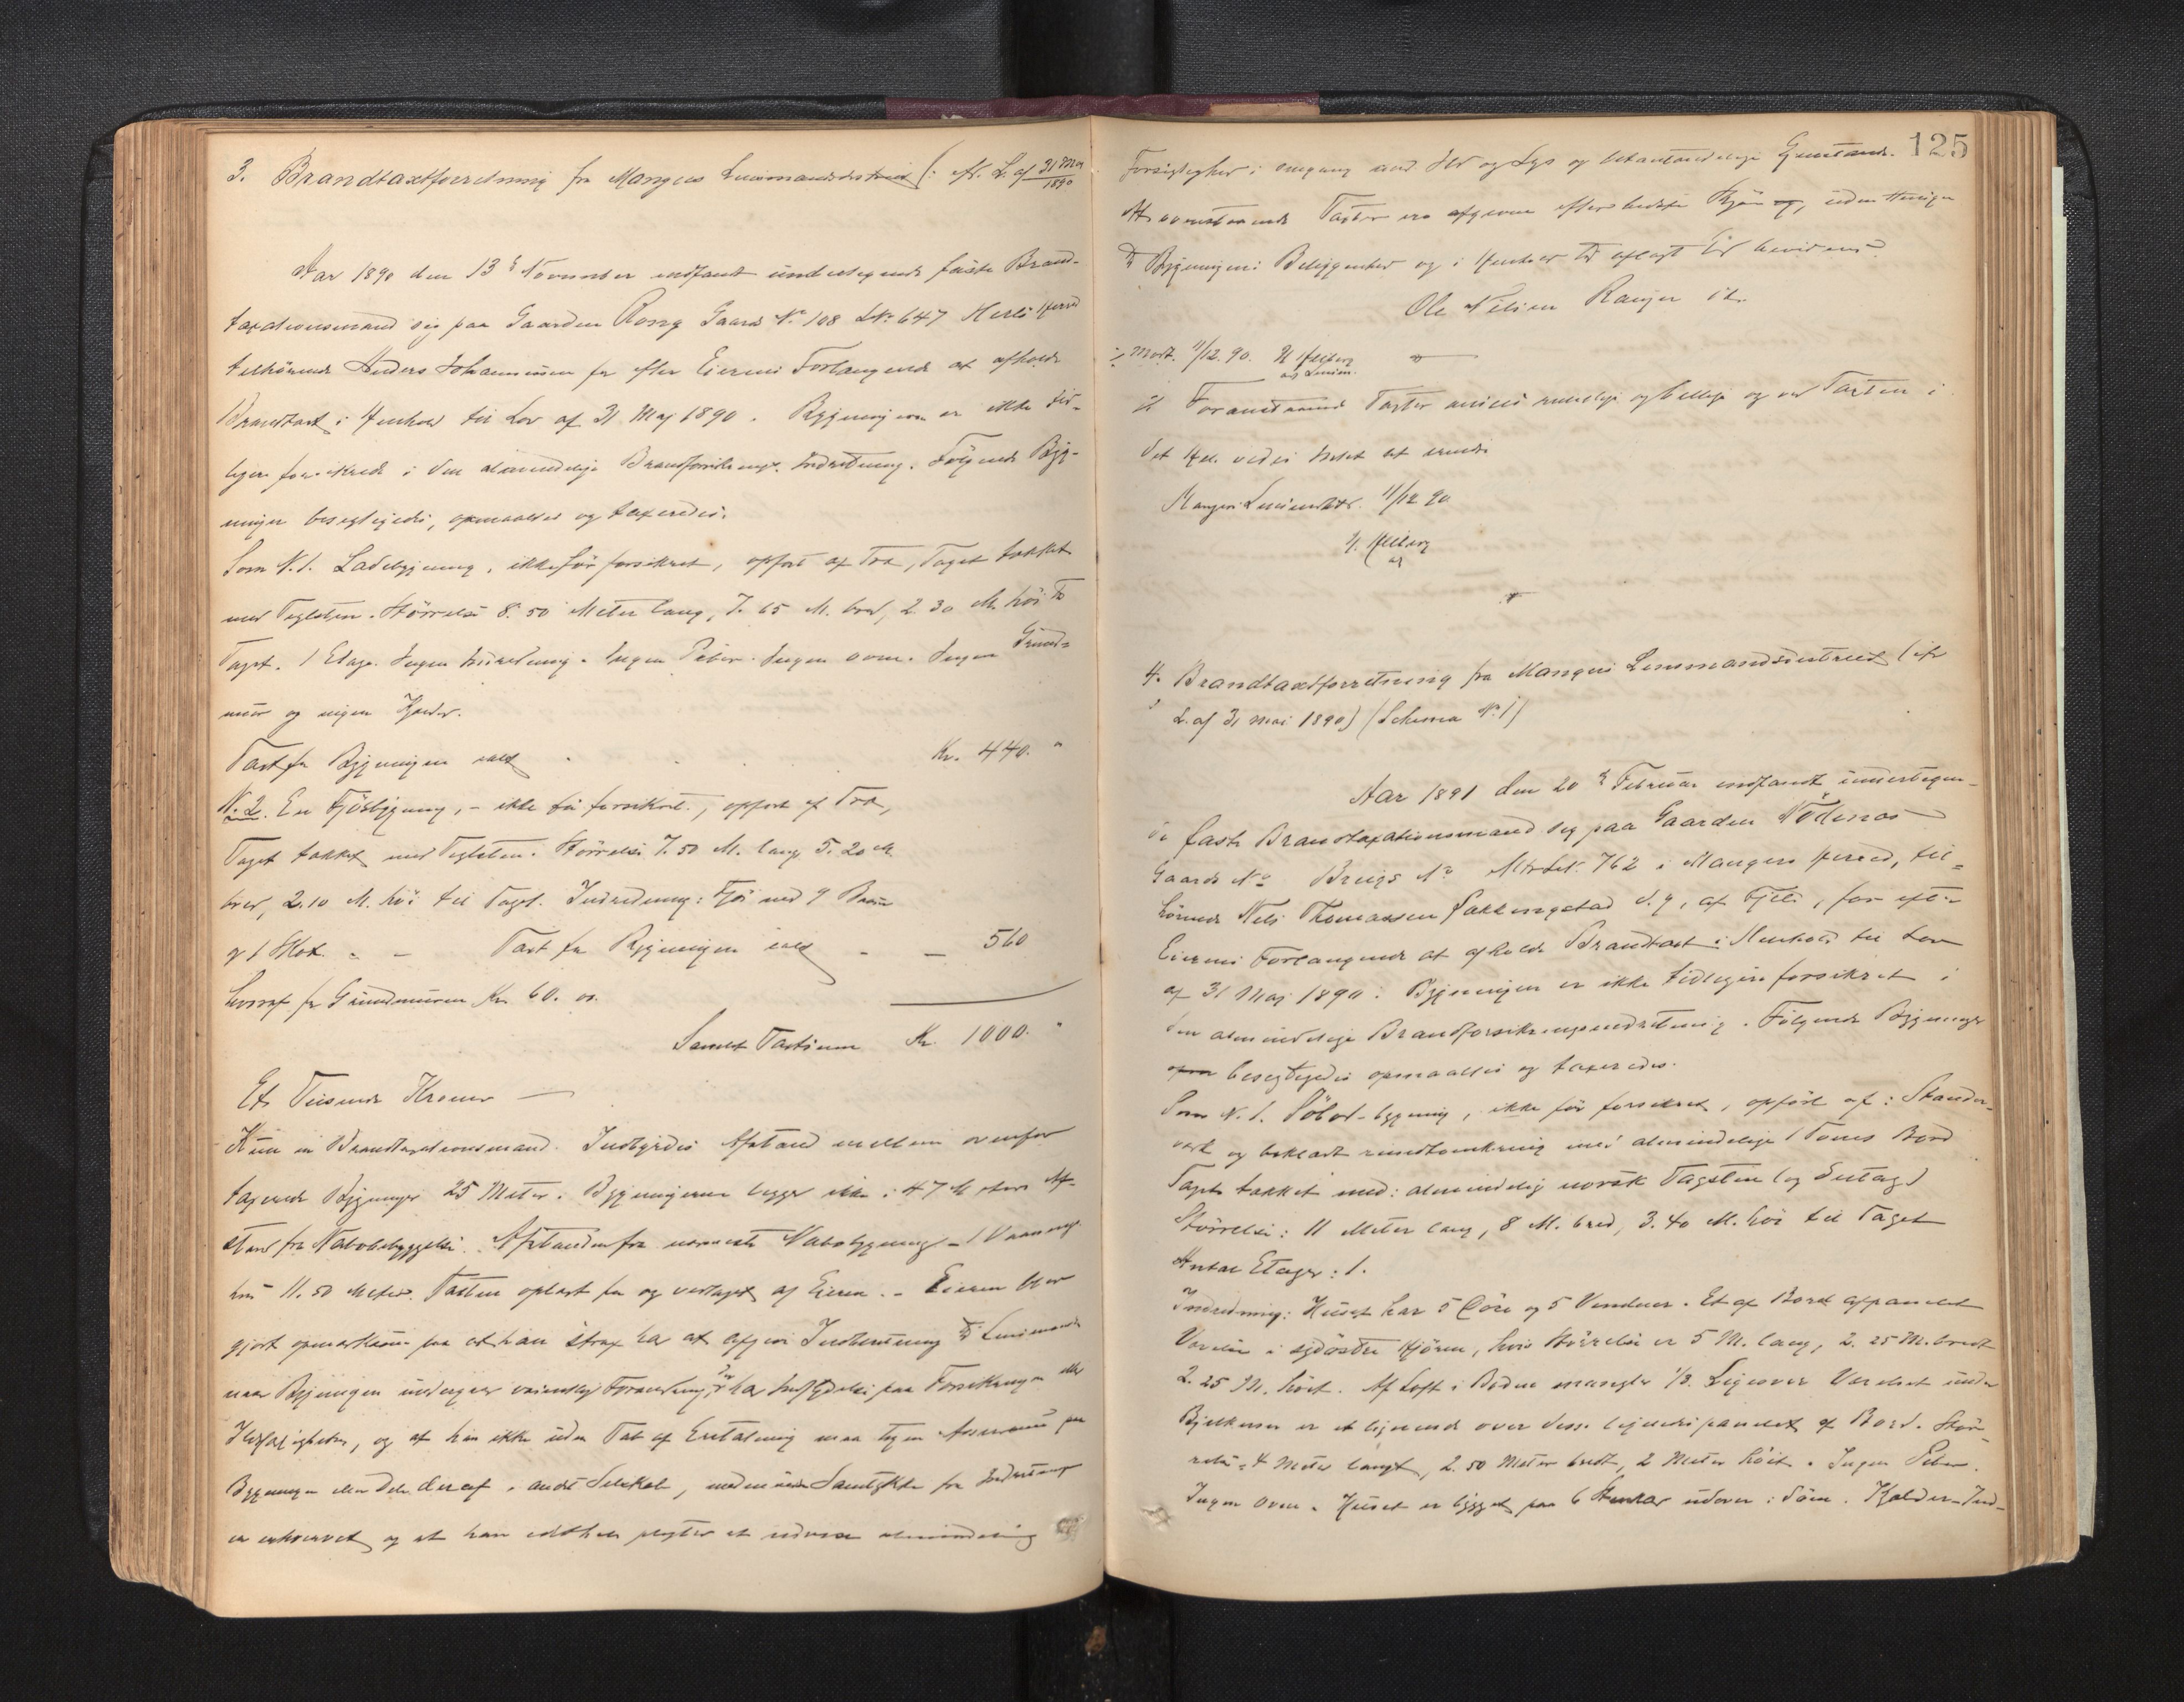 3. Brandtaxtforretning fra Mangers Lensmandsdistrict (: efr. L. af 31 Mai 1890
Aar 1890 den 13de November indfandt undertegnede faste Brand-
taxationsmand sig paa Gaarden Rong Gaards No 108 LNo 647 Herlø Herred
tilhørende Anders Johannessen for efter Eierens Forlangende at afholde
Brandtaxt i Henhold til Lov af 31 Maj 1890. Bygningerne er ikke tid-
ligere forsikrede i den almindelige Brandforsikrings-Indretning. Følgende Byg-
ninger besigtigedes, opmaaltes og taxeredes.
Som N. 1. Ladebygning, ikke før forsikret, opført af Træ, Taget takket
med Taglsten. Størrelse 8.50 Meter lang, 7.65 M. bred, 2.30 M. høi til
Taget. 1 Etage. Ingen Indretning. Ingen Piber. Ingen Ovne. Ingen Grund-
mur og ingen Kjelder.
Taxt for Bygningen ialt Kr. 440. "
N. 2. En Fjøsbygning, - ikke før forsikret, opført af Træ,
Taget takket med Taglsten. Størrelse 7.50 M. lang 5.20 M
bred, 2.10 M. høi til Taget. Indredning: Fjøs med 9 Baase
og 1 Stok. - - Taxt for Bygningen ialt - - 560
hvoraf for Grundmuren Kr. 60.00.
Samlet Taxtsum Kr. 1000. "
Et Tusinde Kroner
Kun en Brandtaxationsmand. Indbyrdes Afstand mellem ovenfor
taxerede Bygninger 25 Meter. Bygningerne ligger ikke i 47 M stor Af-
stand fra Nabobebyggelse. Afstanden fra nærmeste Nabobygning - 1 Vaanings-
hus 11.50 Meter. Taxten oplæst for og vedtaget af Eieren. - Eieren blev
gjort opmærksom paa at han strax har at afgive Indberetning til Lensmanden
naar Bygningen undergaar væsentlig Forandring, der har Indflydelse paa Forsikringen eller
Ildsfarligheden, og at han ikke uden Tab af Erstatning maa tegne Assurance paa
Bygningen eller Dele deraf i andet Selskab, medmindre Samtykke fra Indretningen
er erhvervet og at han ialtfald pligter at udvise almindelig
125
Forsigtighed i omgang med Ild og Lys og letantændelige Gjenstande.
At ovenstaaende Taxter ere afgivne efter bedste Skjøn og, uden Hensyn
til Bygningens Beliggenhed og i Henhold til aflagt Ed bevidnes
Ole Nilsen Ranger
Modt. 11/12. 90. H Heiberg
cst Lensm.
Foranstaaende Taxter ansees rimelige og billige og ved Taxten i
det Hel. vides intet at erindre
Mangers Lensmandsd. 11/12 90
H. Heiberg
cst
4. Brandtaxtforretning fra Mangers Lensmandsdistrict (efr
L. af 31 mai 1890) (Schema No 1)
Aar 1891 den 20de Februar indfandt undertegne-
de faste Brandtaxationsmand sig paa Gaarden Nødenæs
Gaards No Brugs No Mtr. LN. 762 i Mangers Herred, til-
hørende Nels Thomassen Sakkingstad d. y, af Fjeld, for efter
Eierens Forlangende at afholde Brandtaxt i Henhold til Lov
af 31 Maj 1890. Bygningen er ikke tidligere forsikret i
den almindelige Brandforsikringsindretning. Følgende Bygninger
besigtigedes opmaaltes og taxeredes.
Som N. 1. Søbod-bygning, ikke før forsikret, opført af: Stander-
værk og beklædt rundtomkring med almindelige 1 Toms Bord
Taget takket med: almindelig norsk Tagsten
Størrelse: 11 Meter lang, 8 M. bred, 3.40 M. høi til Taget
Antal Etager: 1.
Indredning: Huset har 5 Døre og 5 Vinduer. Et af Bord afpanelet
Værelse i sydøstre Hjørne, hvis Størrelse er 5 M. lang, 2.25 M. bredt
2.25 M. høit. Af Loft i Boden mangler 1/3. Ligeover Værelset under
Bjelkerne er et lignende over disse ligeledes panelet af Bord. Stør-
relse - 4 Meter langt, 2.50 Meter bredt, 2 Meter høit. Ingen Piber.
Ingen Ovne. Huset er bygget paa 6 Stenkar udover i Søen. Kjelder-Ind-